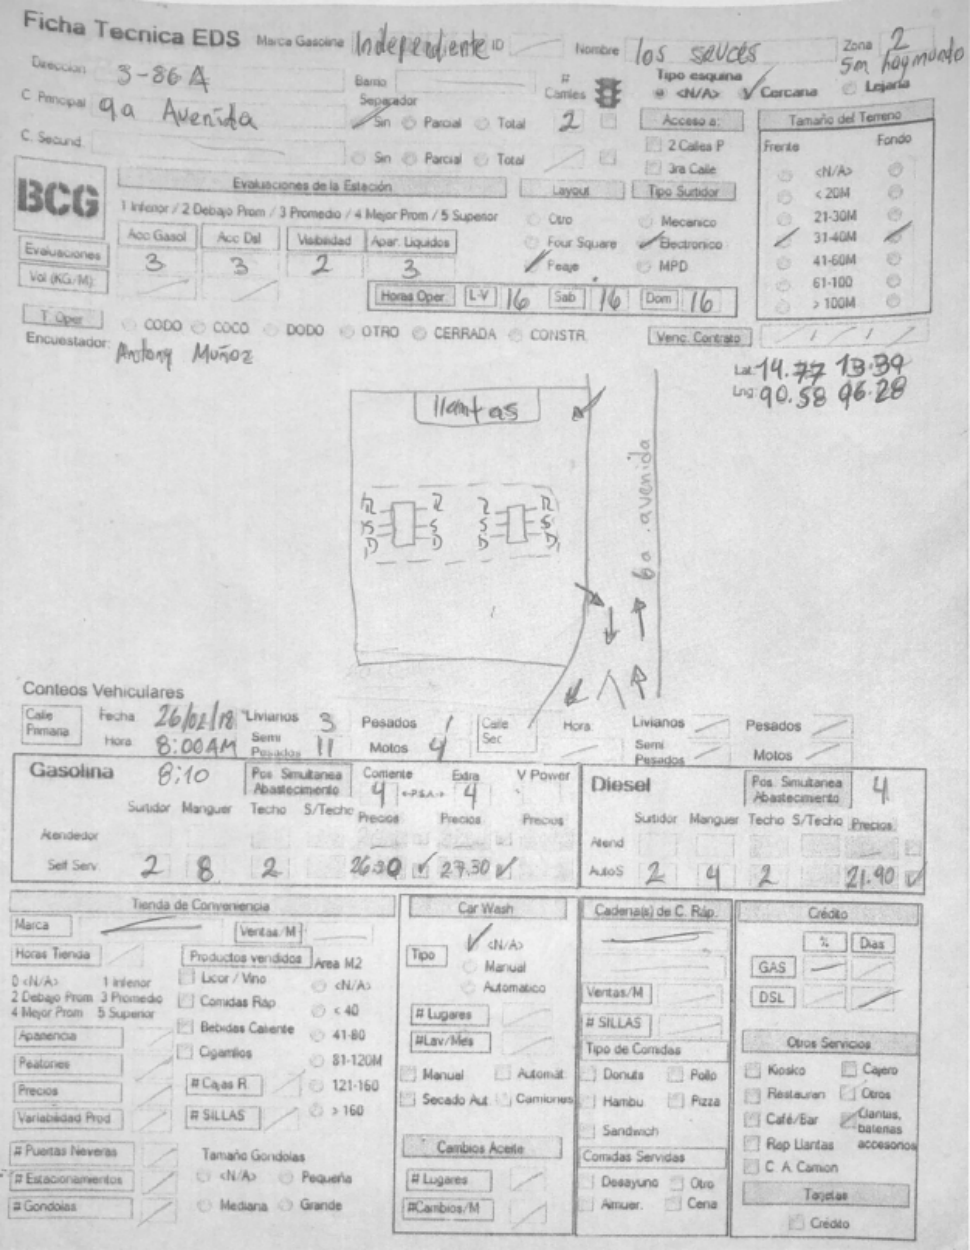 Ficha Tecnica EDS Marca Gasolina Independiente ID Nombre los sauces Zona 2
Sm Raymundo
Direccion 3-86 A Barrio # Carriles Tipo esquina <N/A> Cercana Lejana
C Principal 9a Avenida Separador Sin Parcial Total 2 Acceso a: Tamaño del Terreno
C. Secund. Sin Parcial Total 2 Calles P Frente Fondo
3ra Calle <N/A>
BCG Evaluaciones de la Estación Layout Tipo Surtidor < 20M
1 Inferior / 2 Debajo Prom / 3 Promedio / 4 Mejor Prom / 5 Superior Otro Mecanico 21-30M
Acc Gasol Acc Dsl Visibilidad Apar. Liquidos Four Square Electronico 31-40M
Evaluaciones 3 3 2 3 Peaje MPD 41-60M
Vol (KG/M) Horas Oper. L-V 16 Sab 16 Dom 16 61-100
> 100M
T. Oper CODO COCO DODO OTRO CERRADA CONSTR. Venc. Contrato / / /
Encuestador: Antony Muñoz
Lat 14.77 13.39
Lng 90.58 96.28
llantas
6a. avenida
R R R R
S S S S
D D D D
Conteos Vehiculares
Calle Primaria Fecha 26/02/18 Livianos 3 Pesados 1 Calle Sec Hora Livianos Pesados
Hora 8:00AM Semi Pesados 11 Motos 4 Semi Pesados Motos
Gasolina 8:10 Pos. Simultanea Abastecimiento Corriente 4 <-P.S.A.-> Extra 4 V Power
Surtidor Manguer Techo S/Techo Precios Precios Precios
Atendedor
Self Serv. 2 8 2 26.30 27.30
Diesel Pos. Simultanea Abastecimiento 4
Surtidor Manguer Techo S/Techo Precios
Atend
AutoS 2 4 2 21.90
Tienda de Conveniencia
Marca Ventas/M
Horas Tienda Productos vendidos Area M2
0 <N/A> 1 Inferior
2 Debajo Prom 3 Promedio
4 Mejor Prom 5 Superior
Licor / Vino <N/A>
Comidas Rap < 40
Apariencia Bebidas Caliente 41-80
Peatones Cigarrillos 81-120M
Precios # Cajas R. 121-160
Variabilidad Prod # SILLAS > 160
# Puertas Neveras Tamaño Gondolas
# Estacionamientos <N/A> Pequeña
# Gondolas Mediana Grande
Car Wash
Tipo <N/A>
Manual
Automatico
# Lugares
#Lav/Mes
Manual Automat
Secado Aut Camiones
Cambios Aceite
# Lugares
#Cambios/M
Cadena(s) de C. Ráp.
Ventas/M
# SILLAS
Tipo de Comidas
Donuts Pollo
Hambu Pizza
Sandwich
Comidas Servidas
Desayuno Otro
Almuer. Cena
Crédito
% Dias
GAS
DSL
Otros Servicios
Kiosko Cajero
Restauran Otros
Café/Bar Llantas, baterias accesorios
Rep Llantas
C. A. Camion
Tarjetas
Crédito